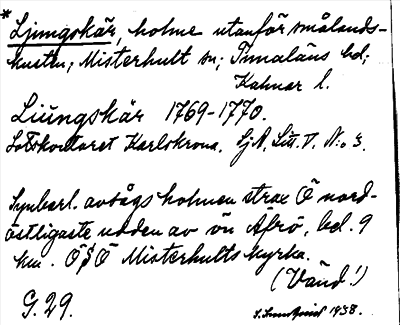 *Ljungskär, holme utanför smålands-
kusten; Misterhult sn; Tunaläns hd;
Kalmar l.
Liungskär 1769-1770.
Lotskontoret Karlskrona. SjA, Litt. V. N:o 3.
Synbarl. avsågs holmen strax Ö nord-
östligaste udden av ön Äfrö, bel. 9
km. ÖSÖ Misterhults kyrka.
(Vänd!)
G. 29.
1938.